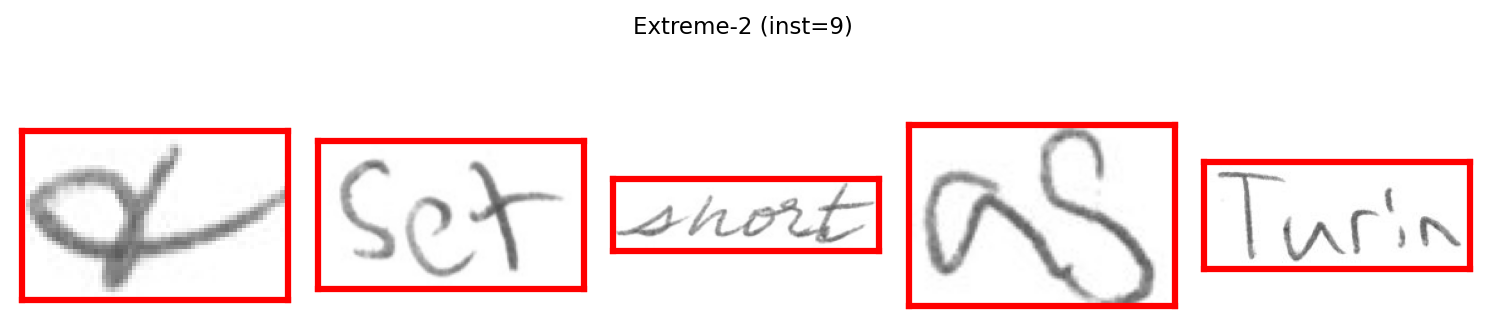 Extreme-2 (inst=9)
Set short as Turin